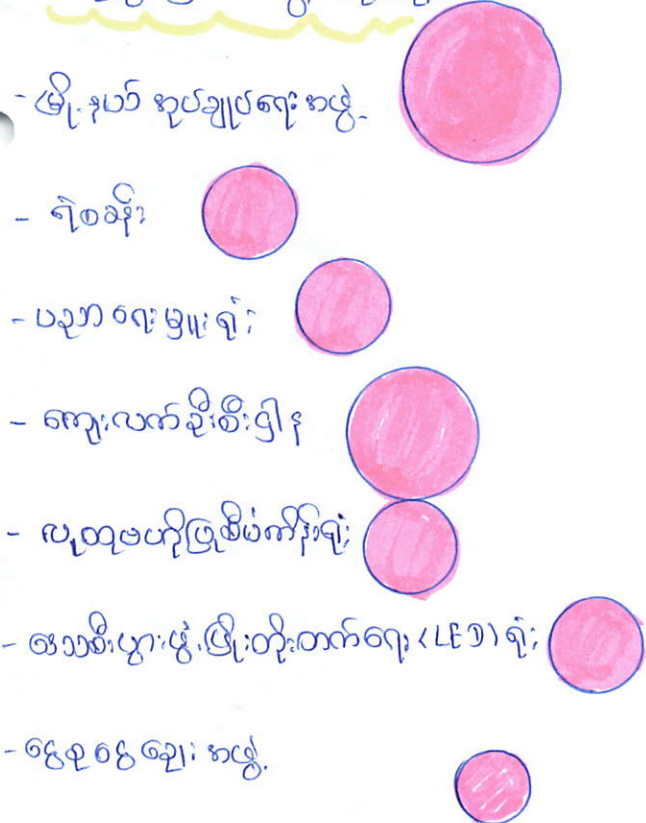 - မြို့နယ် အုပ်ချုပ်ရေး အဖွဲ့
- ရဲစခန်း
- ပညာရေးမှူးရုံး
- ကျေးလက်ဦးစီးဌာန
- လူထုဗဟိုပြုစီမံကိန်းရုံး
- ဒေသစီးပွားဖွံ့ဖြိုးတိုးတက်ရေး (LED) ရုံး
- ငွေစုငွေချေး အဖွဲ့